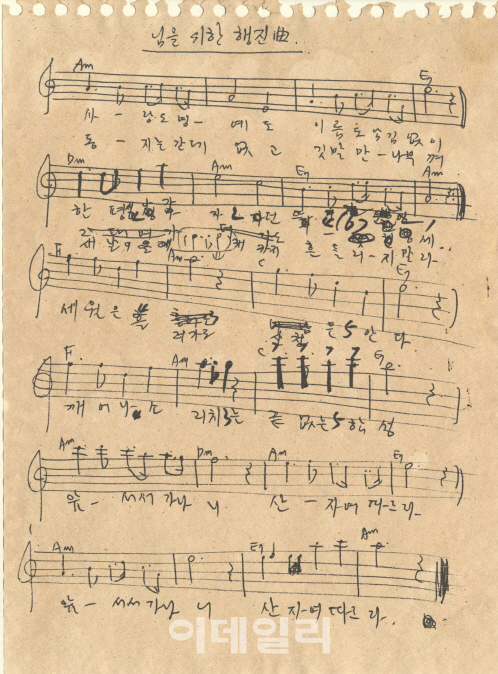 님을 위한 행진曲.
Am E7
사 - 랑도 명- 예 도 이름도 남김 없이
동 - 지는 간데 없 고 깃발 만 - 나부 껴
Dm Am E7 Am
한 평생 세.
새 날이 올때 까지 흔들리-지 말라-
F Am C E7
세월은 러가도 은 안 다
F Am C G7
깨 어나 소 리치는 끝 없는 함 성
Am Dm Am E7
앞- 서서 가나 니 산 - 자여 따르라-
Am E7 Am
앞- 서서 가나 니 산 자여 따르 라.
이데일리